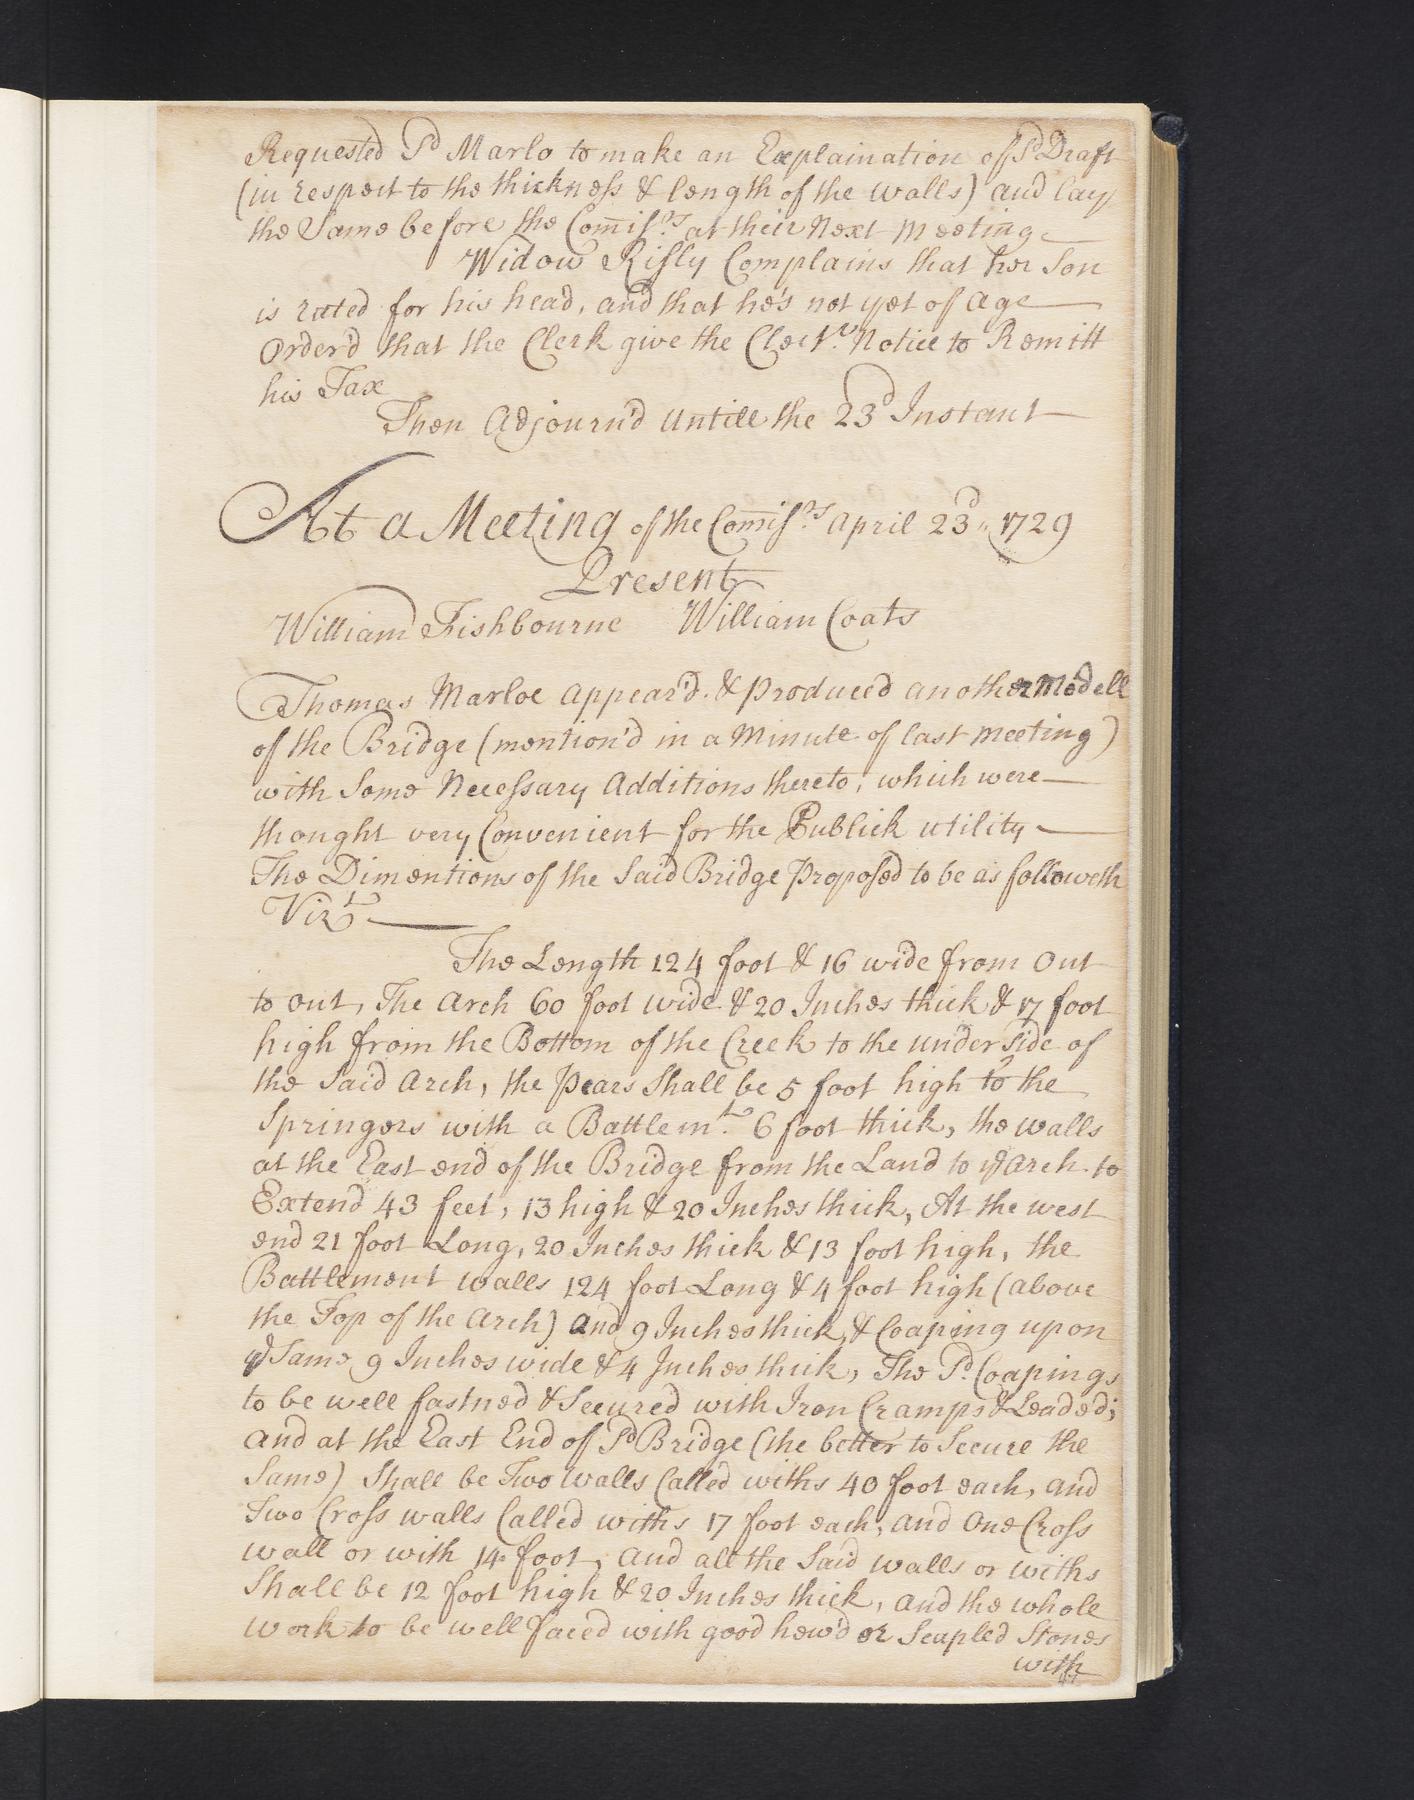 Requested Sd Marlo to make an Explaination of Sd Draft
(in respect to the thickness & length of the walls) and lay
the Same before the Comis:rs at their Next Meeting
Widow Rifly Complains that her Son
is rated for his head, and that he's not yet of age
Order'd that the Clerk give the Clect:r Notice to Remitt
his Tax
Then Adjourn'd Untill the 23d Instant
At a Meeting of the Comis:rs April 23d 1729
Present
William Fishbourne William Coats
Thomas Marloe appear'd & produced another Modell
of the Bridge (mention'd in a Minute of last meeting)
with Some Necessary Additions thereto, which were
thought very Convenient for the Publick utility
The Dimentions of the Said Bridge Proposed to be as followeth
Vizt
The Length 124 foot & 16 wide from Out
to out, The Arch 60 foot wide & 20 Inches thick & 17 foot
high from the Bottom of the Creek to the under Side of
the Said Arch, the Pears Shall be 5 foot high to the
Springers with a Battlem:t 6 foot thick, the walls
at the East end of the Bridge from the Land to ye Arch to
Extend 43 feet, 13 high & 20 Inches thick, At the west
end 21 foot Long, 20 Inches thick & 13 foot high, the
Battlement walls 124 foot Long & 4 foot high (above
the Top of the Arch) and 9 Inches thick, & Coaping upon
ye Same 9 Inches wide & 4 Inches thick, The Sd Coapings
to be well fastned & Secured with Iron Cramps & Leaded;
and at the East End of Sd Bridge (the better to Secure the
Same) Shall be Two walls Called withs 40 foot each, and
Two Cross walls Called withs 17 foot each, and One Cross
wall or with 14 foot, and all the Said walls or withs
Shall be 12 foot high & 20 Inches thick, and the whole
work to be well faced with good hew'd or Scapled Stones
with